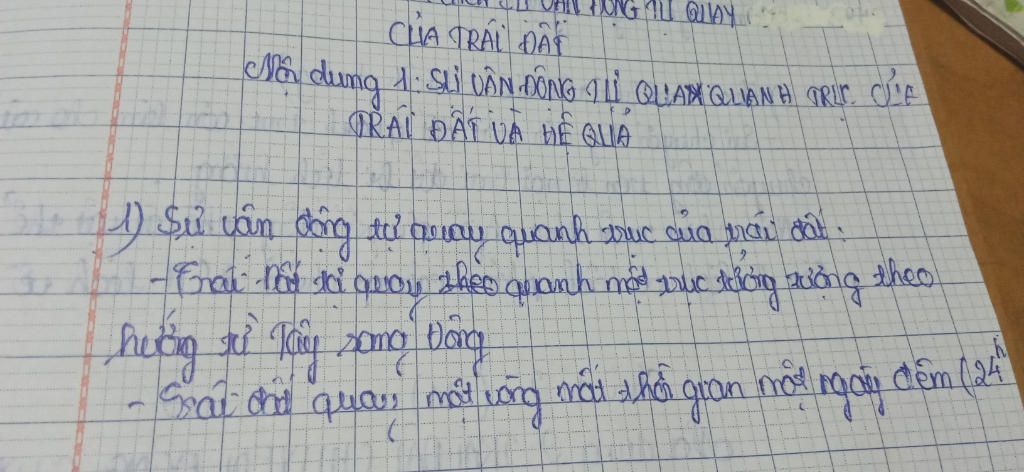 VẬN ĐỘNG TỰ QUAY
CỦA TRÁI ĐẤT
Nội dung 1: SỰ VẬN ĐỘNG TỰ QUAY QUANH TRỤC CỦA
TRÁI ĐẤT VÀ HỆ QUẢ
1) Sự vận động tự quay quanh trục của trái đất:
- Trái đất tự quay theo quanh một trục tưởng tượng theo
hướng từ Tây sang Đông
- Trái đất quay một vòng mất thời gian một ngày đêm (24h